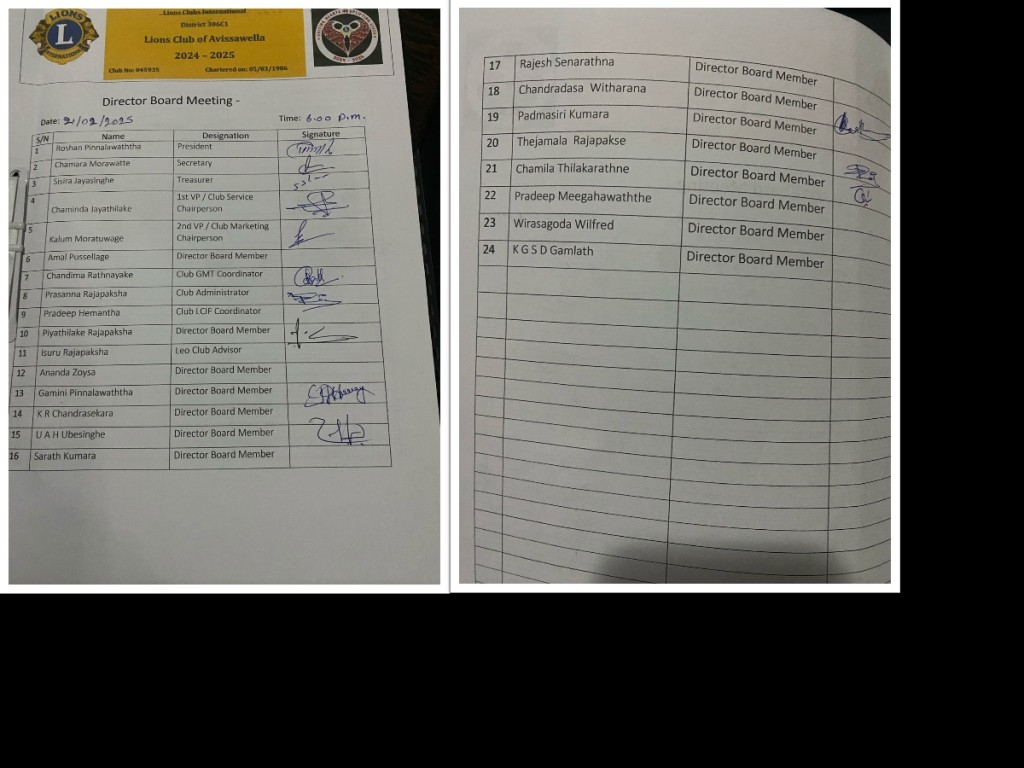 LIONS
L
INTERNATIONAL
Lions Clubs International
District 306C1
Lions Club of Avissawella
2024 – 2025
Club No: 045925 Chartered on: 05/03/1986
Director Board Meeting -
Date: 21/02/2025 Time: 6.00 p.m.
S/N Name Designation Signature
1 Roshan Pinnalawaththa President
2 Chamara Morawatte Secretary
3 Sisira Jayasinghe Treasurer
4 Chaminda Jayathilake 1st VP / Club Service Chairperson
5 Kalum Moratuwage 2nd VP / Club Marketing Chairperson
6 Amal Pussellage Director Board Member
7 Chandima Rathnayake Club GMT Coordinator
8 Prasanna Rajapaksha Club Administrator
9 Pradeep Hemantha Club LCIF Coordinator
10 Piyathilake Rajapaksha Director Board Member
11 Isuru Rajapaksha Leo Club Advisor
12 Ananda Zoysa Director Board Member
13 Gamini Pinnalawaththa Director Board Member
14 K R Chandrasekara Director Board Member
15 U A H Ubesinghe Director Board Member
16 Sarath Kumara Director Board Member
17 Rajesh Senarathna Director Board Member
18 Chandradasa Witharana Director Board Member
19 Padmasiri Kumara Director Board Member
20 Thejamala Rajapakse Director Board Member
21 Chamila Thilakarathne Director Board Member
22 Pradeep Meegahawaththe Director Board Member
23 Wirasagoda Wilfred Director Board Member
24 K G S D Gamlath Director Board Member